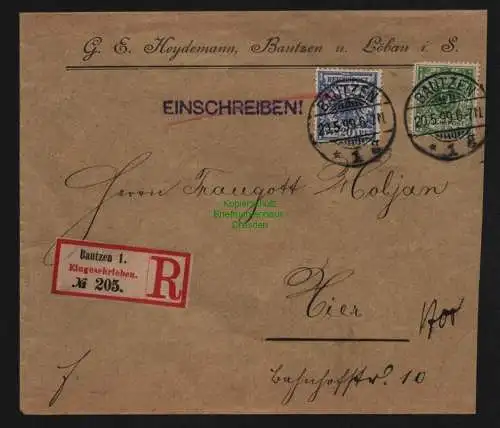 G. E. Heydemann, Bautzen u. Löbau i. S.
EINSCHREIBEN!
BAUTZEN
20.5.99.6-7N
* 1 *
BAUTZEN
20.5.99.6-7N
* 1 *
Herrn Traugott Holjan
Kopierschutz
Briefmarkenhaus
Dresden
Bautzen 1.
Eingeschrieben.
№ 205.
R
Hier
Bahnhofstr. 10